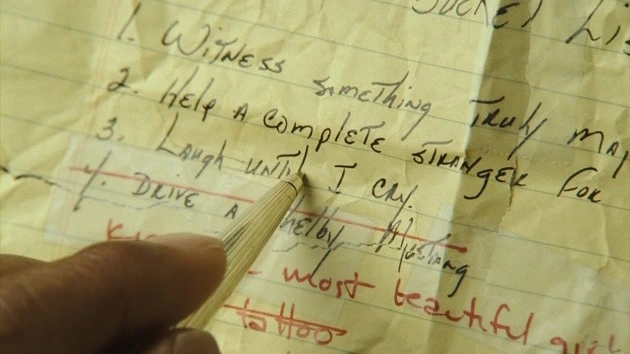 1. Witness something Truly
2. Help A complete STRANGER FOR
3. Laugh until I cry.
4. DRIVE A Shelby Mustang
- most beautiful
tattoo